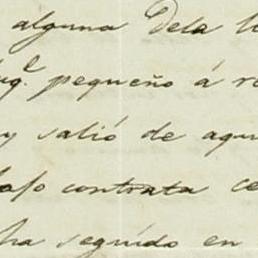 alguna dela
pequeño á
y salió de
contrata
ha seguido en